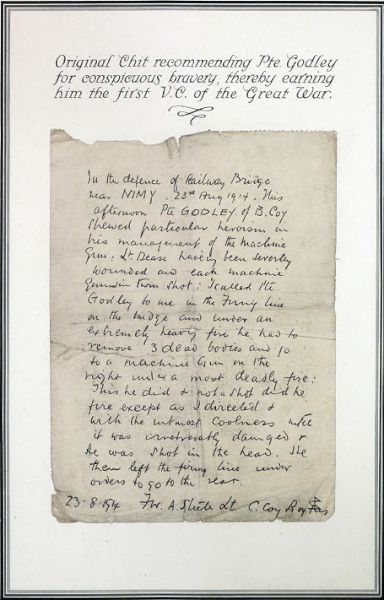 Original Chit recommending Pte. Godley
for conspicuous bravery, thereby earning
him the first V.C. of the Great War.
In the defence of Railway Bridge
near NIMY. 23rd Aug 1914. This
afternoon Pte GODLEY of B. Coy
shewed particular heroism in
his management of the Machine
Gun: Lt Dease having been severely
wounded and each machine
gunner in turn shot: I called Pte
Godley to me in the Firing line
on the bridge and under an
extremely heavy fire he had to
remove 3 dead bodies and go
to a machine Gun on the
right under a most deadly fire:
This he did & not a shot did he
fire except as I directed &
with the utmost coolness until
it was irretrievably damaged &
he was shot in the head. He
then left the firing line under
orders to go to the rear.
23.8.1914 F.W.A. Steele Lt C. Coy